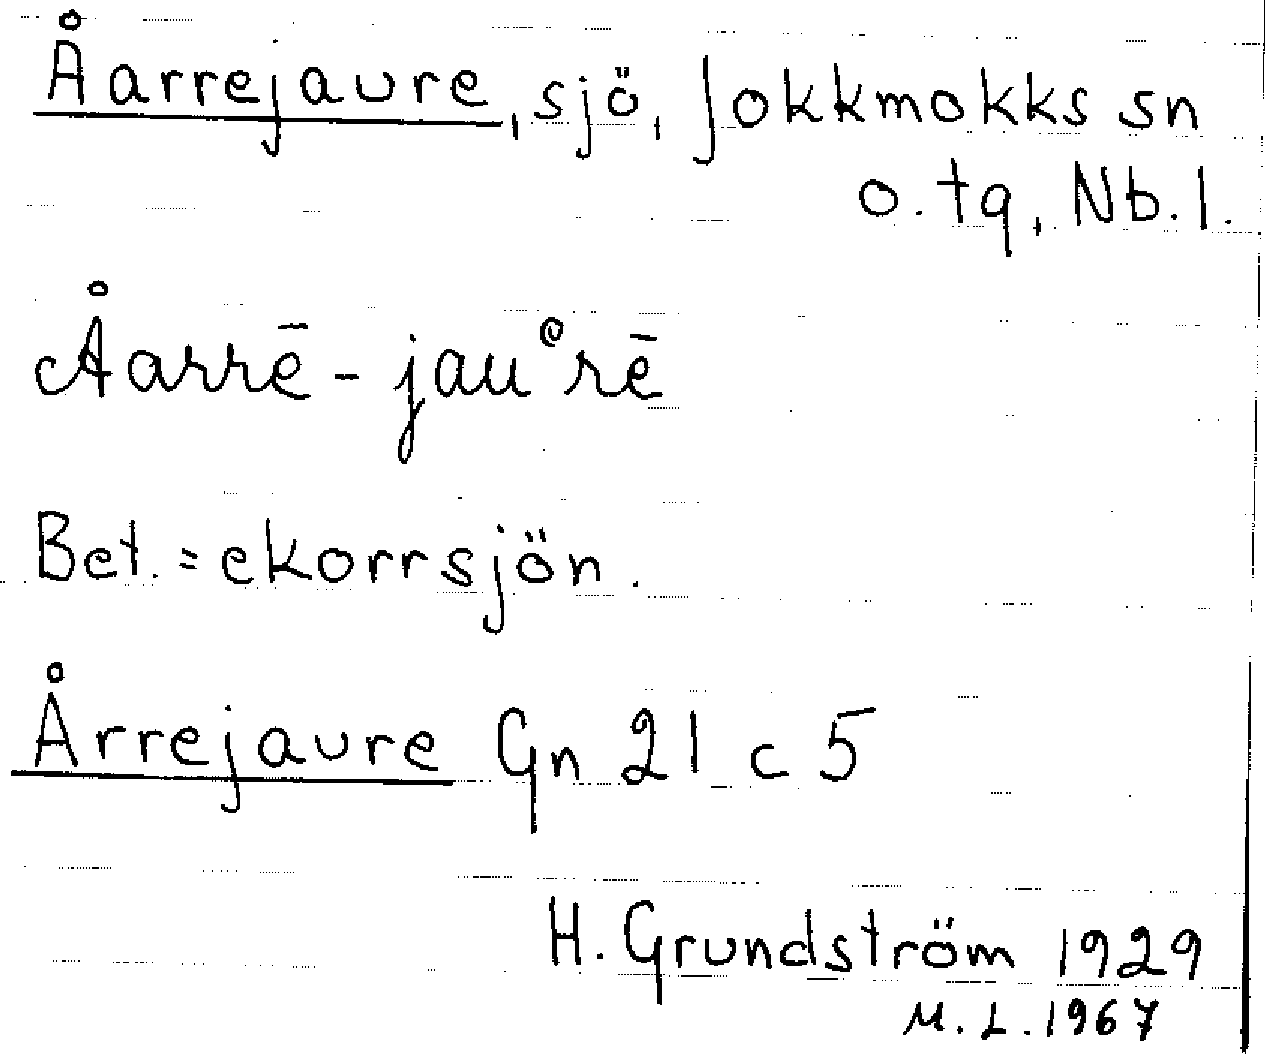 Åarrejaure, sjö, Jokkmokks sn
o. tg, Nb. l.
Åarrē-jauᵉrē
Bet. = ekorrsjön.
Årrejaure Gn 21 c 5
H. Grundström 1929
M. L. 1967